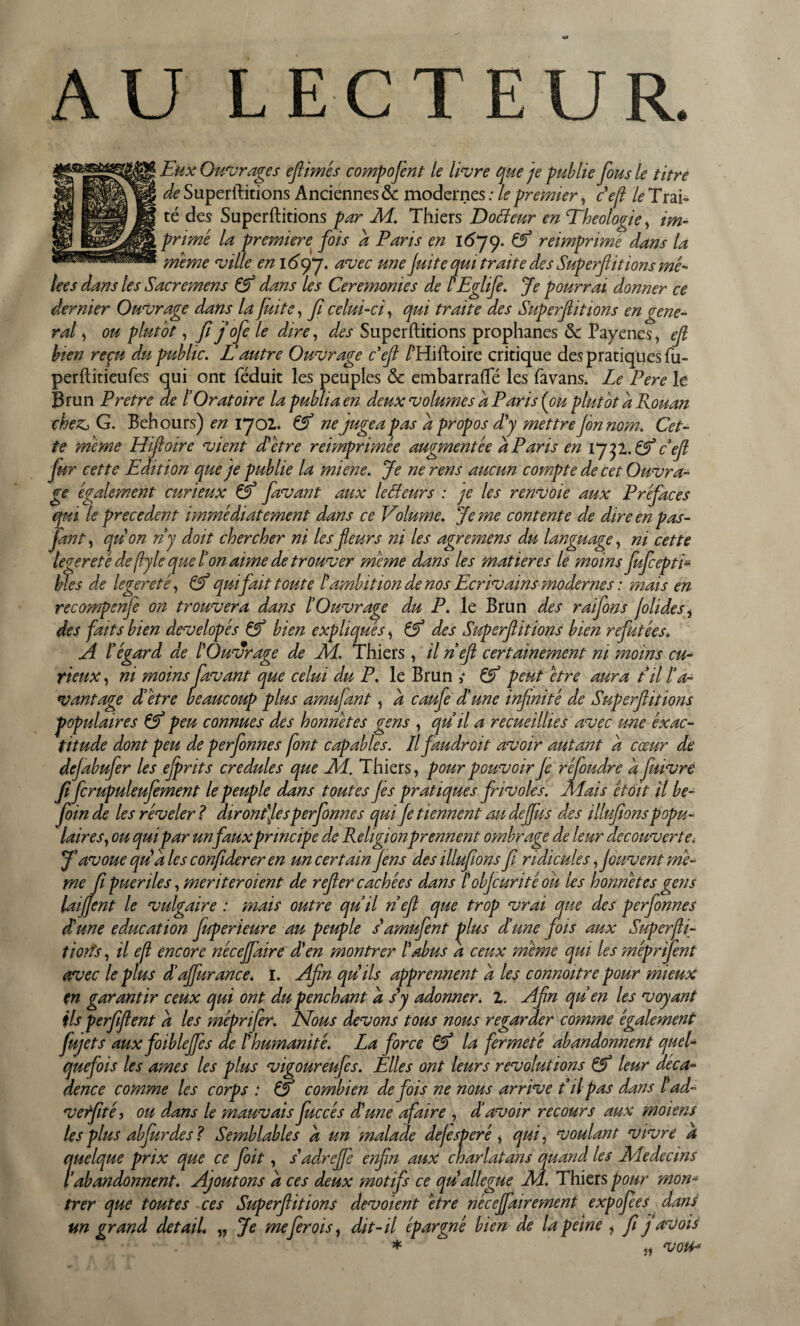 AU LECTEUR.
DEux Ouvrages eſtimés compoſent le livre que je publie ſous le titre
de Superſtitions Anciennes & modernes: le premier, c'eſt le Trai-
té des Superſtitions par M. Thiers Docteur en Theologie, im-
primé la premiere fois à Paris en 1679. & reimprimé dans la
meme ville en 1697. avec une ſuite qui traite des Superſtitions mê-
lees dans les Sacremens & dans les Ceremonies de l'Egliſe. Je pourrai donner ce
dernier Ouvrage dans la ſuite, ſi celui-ci, qui traite des Superſtitions en gene-
ral, ou plutot, ſi j'oſe le dire, des Superſtitions prophanes & Payenes, eſt
bien reçu du public. L'autre Ouvrage c'eſt l'Hiſtoire critique des pratiques ſu-
perſtitieuſes qui ont ſéduit les peuples & embarraſſé les ſavans. Le Pere le
Brun Pretre de l'Oratoire la publia en deux volumes à Paris (ou plutôt à Rouan
chez G. Behours) en 1702. & ne jugea pas à propos d'y mettre ſon nom. Cet-
te même Hiſtoire vient d'être reimprimée augmentée à Paris en 1732. & c'eſt
ſur cette Edition que je publie la miene. Je ne rens aucun compte de cet Ouvra-
ge également curieux & ſavant aux lecteurs : je les renvoie aux Préfaces
qui le precedent immédiatement dans ce Volume. Je me contente de dire en paſ-
ſant, qu'on n'y doit chercher ni les fleurs ni les agremens du language, ni cette
legereté de ſtyle que l'on aime de trouver même dans les matieres le moins ſuſcepti-
bles de legereté, & qui fait toute l'ambition de nos Ecrivains modernes : mais en
recompenſe on trouvera dans l'Ouvrage du P. le Brun des raiſons ſolides,
des faits bien developés & bien expliqués, & des Superſtitions bien refutées.
A l'égard de l'Ouvrage de M. Thiers, il n'eſt certainement ni moins cu-
rieux, ni moins ſavant que celui du P. le Brun ; & peut etre aura t'il l'a-
vantage d'etre beaucoup plus amuſant, à cauſe d'une infinité de Superſtitions
populaires & peu connues des honnêtes gens, qu'il a recueillies avec une éxac-
titude dont peu de perſonnes ſont capables. Il faudroit avoir autant à cœur de
deſabuſer les eſprits credules que M. Thiers, pour pouvoir ſe réſoudre à ſuivre
ſi ſcrupuleuſement le peuple dans toutes ſes pratiques frivoles. Mais étoit il be-
ſoin de les réveler ? diront les perſonnes qui ſe tiennent au deſſus des illuſions popu-
laires, ou qui par un faux principe de Religion prennent ombrage de leur decouverte.
J'avoue qu'à les conſiderer en un certain ſens des illuſions ſi ridicules, ſouvent mê-
me ſi pueriles, meriteroient de reſter cachées dans l'obſcurité où les honnêtes gens
laiſſent le vulgaire : mais outre qu'il n'eſt que trop vrai que des perſonnes
d'une education ſuperieure au peuple s'amuſent plus d'une fois aux Superſti-
tions, il eſt encore néceſſaire d'en montrer l'abus à ceux même qui les mépriſent
avec le plus d'aſſurance. 1. Afin qu'ils apprennent à les connoitre pour mieux
en garantir ceux qui ont du penchant à s'y adonner. 2. Afin qu'en les voyant
ils perſiſtent à les mépriſer. Nous devons tous nous regarder comme également
ſujets aux foibleſſes de l'humanité. La force & la fermeté abandonnent quel-
quefois les ames les plus vigoureuſes. Elles ont leurs revolutions & leur déca-
dence comme les corps : & combien de fois ne nous arrive t'il pas dans l'ad-
verſité, ou dans le mauvais ſuccés d'une afaire, d'avoir recours aux moiens
les plus abſurdes ? Semblables à un malade deſesperé, qui, voulant vivre à
quelque prix que ce ſoit, s'adreſſe enfin aux charlatans quand les Medecins
l'abandonnent. Ajoutons à ces deux motifs ce qu'allegue M. Thiers pour mon-
trer que toutes ces Superſtitions devoient être néceſſairement expoſées dans
un grand detail. „ Je me ſerois, dit-il épargné bien de la peine, ſi j'avois
* „ vou-